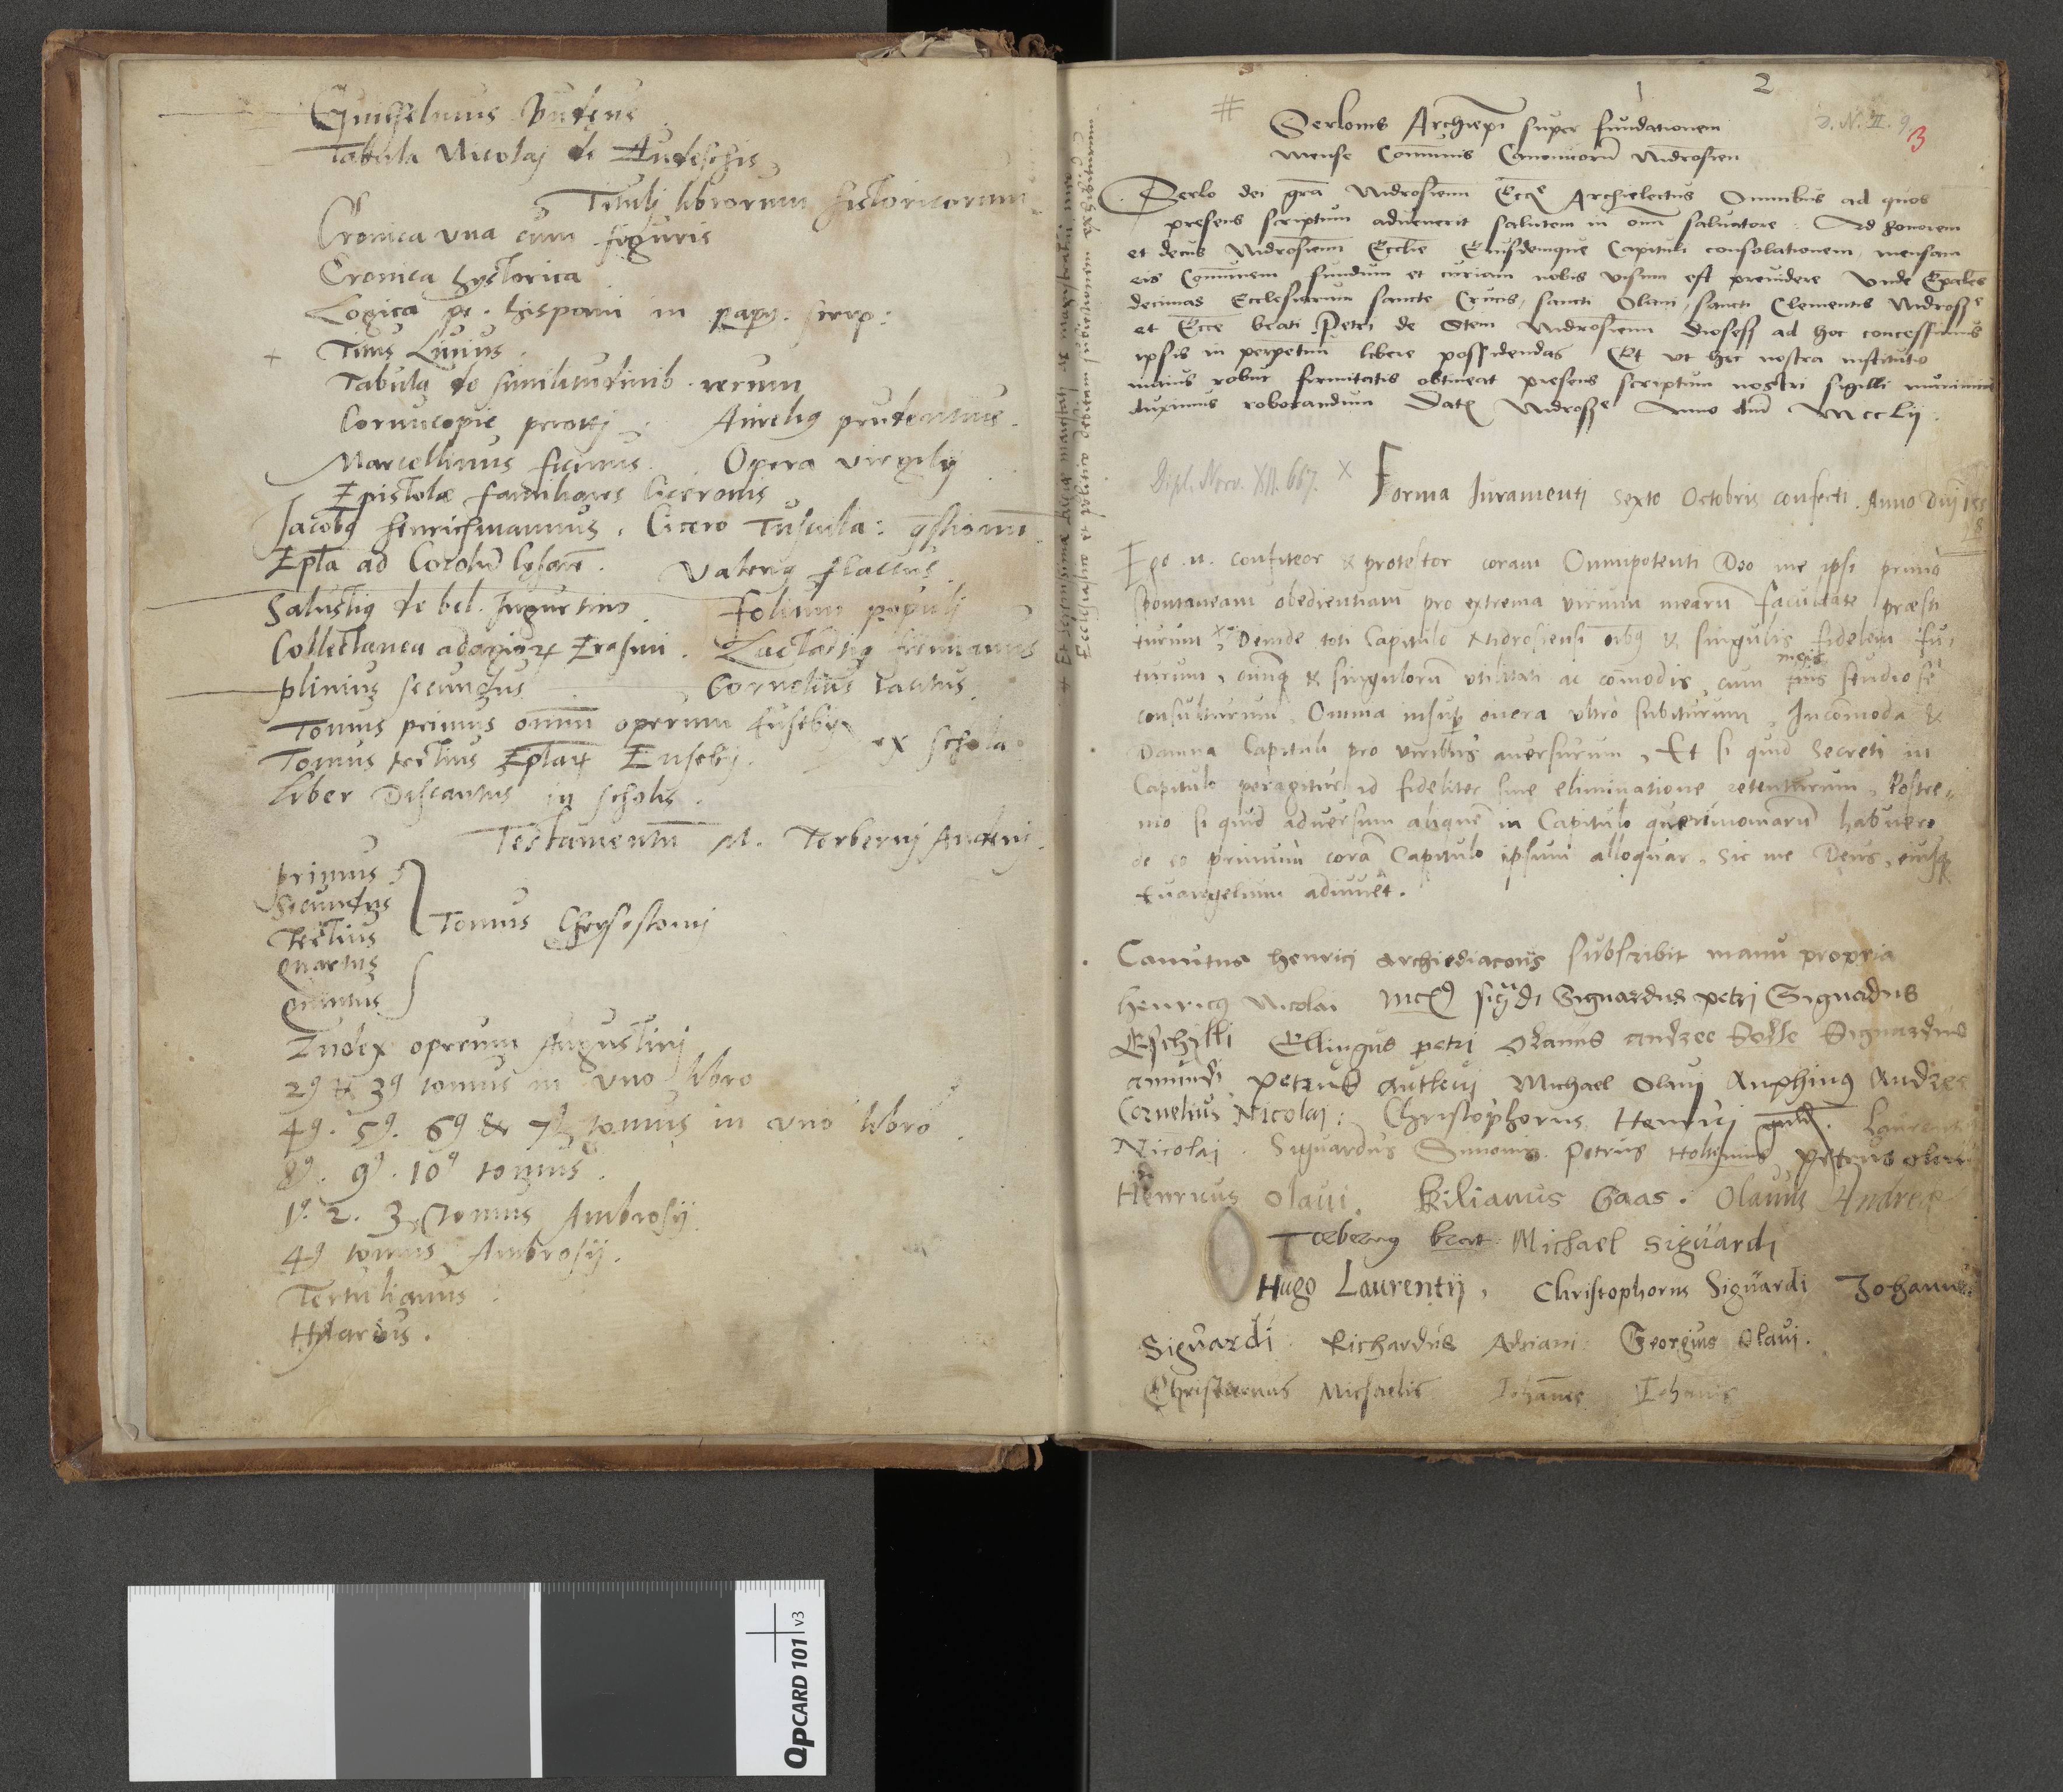 Guilhelmus Budeus
Tabula Nicolaj de Tudeschis
Titulj librorum historicorum
Cronica vna cum figuris
Cronica hystorica
Logica pe. hispani in papy. scrip:
+ Titus Liuius
Tabula de similitudinib. rerum
Cornucopie perotti Aurelig prudentius.
Marcellinus ficinus. Opera virgilij
Epistolæ familiares Ciceronis
Jacobg Henrichmannus. Cicero Tuscula: qstionū
Epla ad Valerig flaccus
Salustig de bel. Jugurtino folium populj
Collectanea adagioꝝ Erasmi. Lactātig firmianus
plinius secundus Cornelius tacitus
Tomus primus omm̄ operum Eusebij
Tomus tertius Eplaꝝ Eusebij. ex schola
Liber Discantus in scholis.
Testamentū M. Torbernj
primus
Secundus
Tertius Tomus Chrysostomj
Quartus
Quintus
Index operum Augustinj
2g & 3g tomus in vno libro
4g. 5g. 6g & 7g tomus in vno libro.
8g. 9g. 10g tomus.
1g. 2. 3 tomus Ambrosij
4g tomus Ambrosij.
Tertulianus
Hylarius.
1 2
D. N. II. 9
3
# Serlonis Archiepi super fundationem
mense Com̄unis Canonicorū Nidrosien
Serlo dei gr̄a Nidrosienn Eccē Archielectus Omnibus ad quos
presens scriptum aduenerit salutem in om̄i saluatore. Ad honorem
et decus Nidrosienn Ecclīe Eiusdemque Capituli consolationem, mensam
eis Com̄unem fundum et curiam nobis visum est preuidere Vnde
decimas Ecclesiarum sancte Crucis, sancti Olaui, sancti Clementis Nidross
et Eccē beati Petri de Stein Nidrosienn dioses ad hoc concessimus
ipsis in perpetuū libere possidendas Et vt hec nostra institutio
maius robur firmitatis obtineat presens scriptum nostri sigilli munimine
duximus roborandum Datū Nidross Anno dn̄i MccLij.
Dipl. Norv. XII. 667. × Forma Iuramenti Sexto Octobris confecti. Anno Dn̄j 155
8
Ego .n. confiteor & protestor coram Omnipotenti Deo me ipsi primò
spontaneam obedientiam pro extrema virium mearū facultate præsti
turum, Deinde toti Capitulo Nidrosiensi oībg & singulis fidelem fu-
meis
turum, & singulorū vtilitati ac com̄odis, cum studio
consulturum. Omnia insup onera vltro subiturum, Incom̄oda &
Damna Capituli pro viribus auersurum, Et si quid Secreti in
Capitulo peragitur id fideliter sine eliminatione retenturum, Postre-
mo si quid aduersum aliquē in Capitulo querimoniarū habuero
de eo primum corā Capitulo ipsum alloquar. Sic me Deus, eiusq
Euangelium adiuuet.
Canutus henrici archidiaconus subscribit manu propria
Henricg Nicolai Siguardus petri Siguadus
Eschilli Ellingus petri Olauus andree Siguardus
amundi petrus Michael Olaui Anphing Andree
Cornelius Nicolaj: Christophorus Henrici Laurent
Nicolaj. Siguardus Simonis. Petrus petrus
Henricus Olaui. Kilianus Gaas. Olauus Andreæ
Torberng Michael Siguardi
Hugo Laurentij, Christophorus Siguardi Johannes
Siguardi Richardus Adriani Georgius Olaui.
Christiernus Michaelis Johānes Iohānis
QPCARD 101 v3